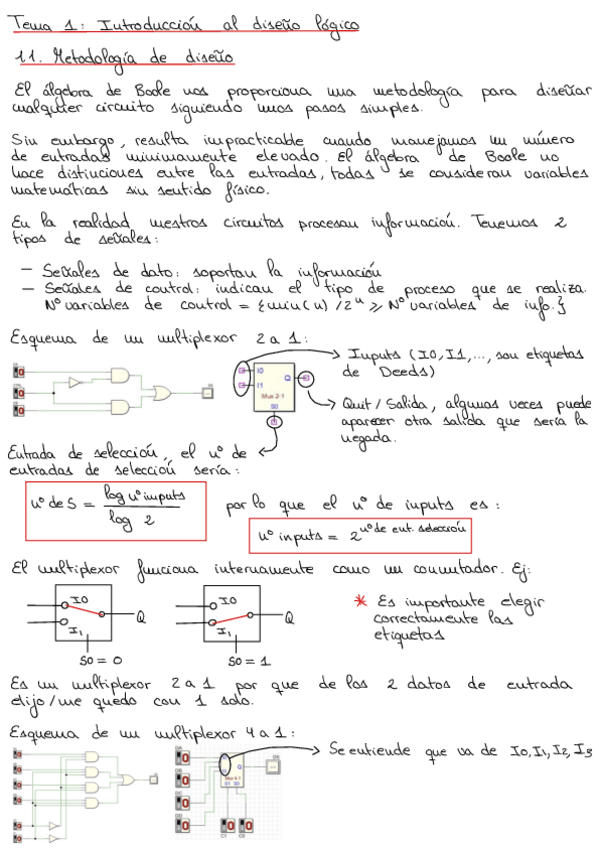 Tema 1: Introducción al diseño lógico
1.1. Metodología de diseño
El álgebra de Boole nos proporciona una metodología para diseñar
cualquier circuito siguiendo unos pasos simples.
Sin embargo, resulta impracticable cuando manejamos un número
de entradas mínimamente elevado. El álgebra de Boole no
hace distinciones entre las entradas, todas se consideran variables
matemáticas sin sentido físico.
En la realidad nuestros circuitos procesan información. Tenemos 2
tipos de señales:
— Señales de dato: soportan la información
— Señales de control: indican el tipo de proceso que se realiza.
Nº variables de control = {min(n) / 2ⁿ ⩾ Nº variables de info.}
Esquema de un multiplexor 2 a 1:
I0
I1
Q
Mux 2-1
S0
→ Inputs (I0, I1, ..., son etiquetas
de Deeds)
→ Quit / Salida, algunas veces puede
aparecer otra salida que sería la
negada.
Entrada de selección, el nº de
entradas de selección sería:
nº de S = log nº inputs / log 2
por lo que el nº de inputs es:
nº inputs = 2^nº de ent. selección
El multiplexor funciona internamente como un conmutador. Ej:
I0
I1
Q
S0 = 0
I0
I1
Q
S0 = 1
* Es importante elegir
correctamente las
etiquetas
Es un multiplexor 2 a 1 por que de los 2 datos de entrada
elijo/me quedo con 1 solo.
Esquema de un multiplexor 4 a 1:
Mux 4-1
S1 S0
C1 C0
→ Se entiende que va de I0, I1, I2, I3